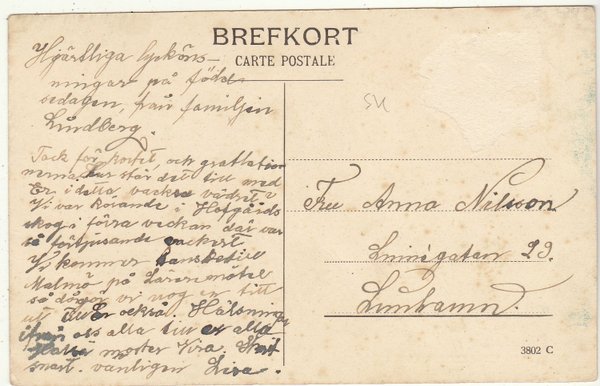 BREFKORT
CARTE POSTALE
Hjärtliga lycköns-
ningar på född-
sedagen, från familjen
Lundberg.
Tack för kortet, och grattlation
nerna. hur står det till med
Er i detta vackra vädret?
Vi var körande i Hofgårds
skog i förra veckan där var
så förtjusande vackert
Vi kommer kanske till
Malmö på Läraremötet
så då vi nog er till
ut till Er också. Hälsningar
ifrån oss alla till er alla
Hälsa moster Kira. Skrif
snart. vänligen Lisa.
Fru Anna Nilsson
23.
Limhamn.
3802 C